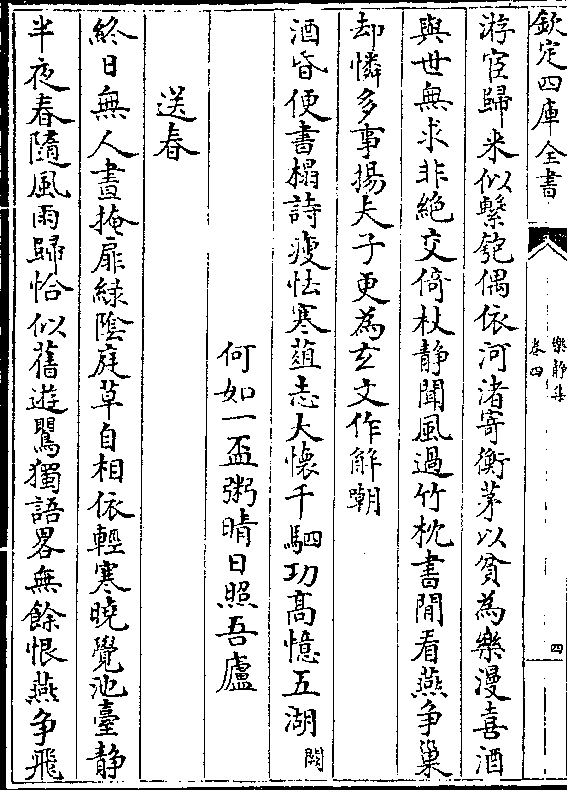 欽定四庫全書
樂靜集
卷四
四
游宦歸来似繫匏偶依河渚寄衡茅以貧為樂漫喜酒
與世無求非絶交倚杖静聞風過竹枕書閒看燕争巢
却憐多事揚夫子更為玄文作解嘲
酒昏便書榻詩瘦怯寒葅志大懐千駟功髙憶五湖闕
何如一盃粥晴日照吾廬
送春
終日無人晝掩扉緑陰庭草自相依輕寒曉覺池臺静
半夜春隨風雨歸恰似舊遊鶯獨語畧無餘恨燕争飛